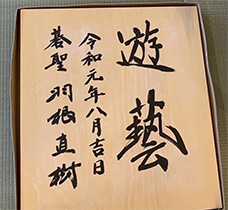 遊藝
令和元年八月吉日
碁聖 羽根直樹